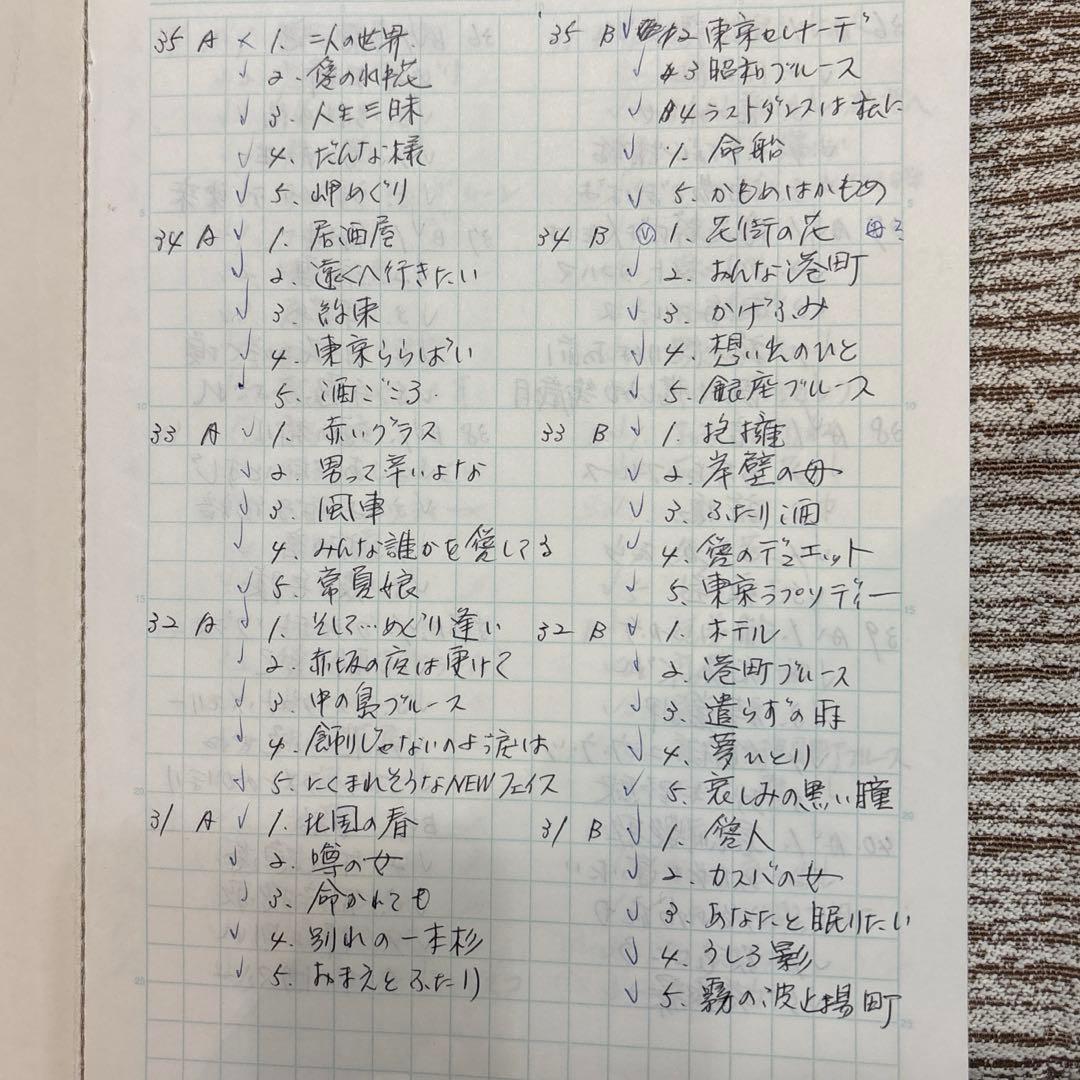 35 A × 1. 二人の世界.
✓ 2. 愛の水中花
✓ 3. 人生三昧
✓ 4. だんな様
✓ 5. 岬めぐり
34 A ✓ 1. 居酒屋
✓ 2. 遠くへ行きたい
✓ 3. 約束
✓ 4. 東京ららばい
✓ 5. 酒ごころ.
33 A ✓ 1. 赤いグラス
✓ 2. 男って辛いよな
✓ 3. 風車
✓ 4. みんな誰かを愛してる
✓ 5. 常夏娘
32 A ✓ 1. そして…めぐり逢い
✓ 2. 赤坂の夜は更けて
✓ 3. 中の島ブルース
✓ 4. 飾りじゃないのよ涙は
✓ 5. にくまれそうなNEWフェイス
31 A ✓ 1. 北国の春
✓ 2. 噂の女
✓ 3. 命かれても
✓ 4. 別れの一本杉
✓ 5. おまえとふたり
35 B ✓ 2 東京セレナーデ
✓ 3 昭和ブルース
✓ 4 ラストダンスは私に
✓ 1. 命船
✓ 5. かもめはかもめ
34 B ✓ 1. 花街の花
✓ 2. おんな港町
✓ 3. かげふみ
✓ 4. 想い出のひと
✓ 5. 銀座ブルース
33 B ✓ 1. 抱擁
✓ 2. 岸壁の母
✓ 3. ふたり酒
✓ 4. 愛のデュエット
✓ 5. 東京ラプソディー
32 B ✓ 1. ホテル
✓ 2. 港町ブルース
✓ 3. 遣らずの雨
✓ 4. 夢ひとり
✓ 5. 哀しみの黒い瞳
31 B ✓ 1. 愛人
✓ 2. カスバの女
✓ 3. あなたと眠りたい
✓ 4. うしろ影
✓ 5. 霧の波止場町